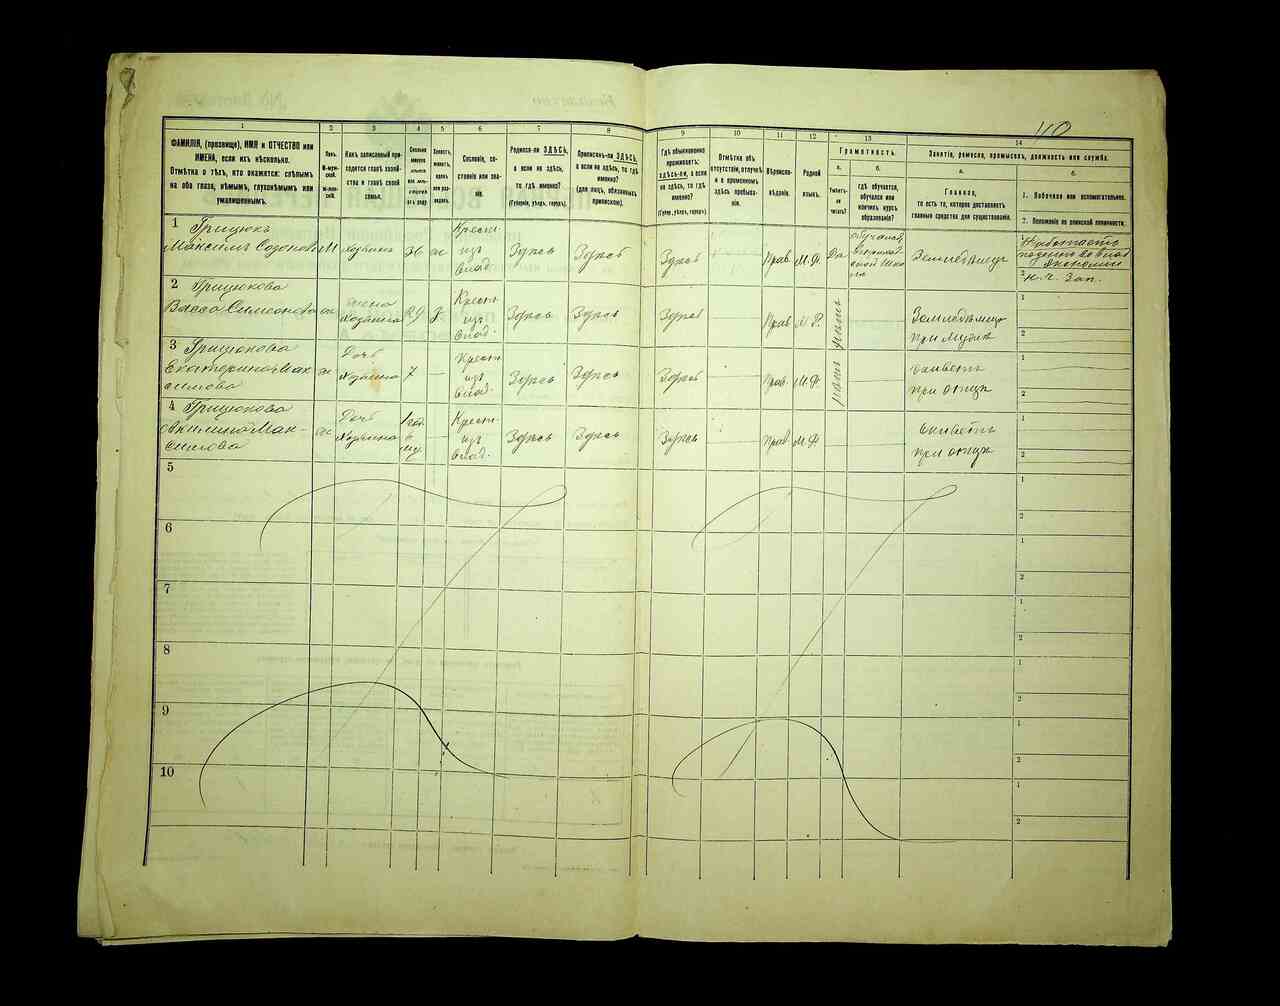 110
1
2
3
4
5
6
7
8
9
10
11
12
13
14
ФАМИЛІЯ, (прозвище), ИМЯ и ОТЧЕСТВО или
ИМЕНА, если ихъ нѣсколько.
Отмѣтка о тѣхъ, кто окажется: слѣпымъ
на оба глаза, нѣмымъ, глухонѣмымъ или
умалишеннымъ.
Полъ.
М-муж-
ской.
Ж-жен-
скій.
Какъ записанный при-
ходится главѣ хозяй-
ства и главѣ своей
семьи.
Сколько
минуло
лѣтъ
или мѣ-
сяцевъ
отъ роду
Холостъ,
женатъ,
вдовъ
или раз-
веденъ.
Сословіе, со-
стояніе или зва-
ніе.
Родился-ли ЗДѢСЬ,
а если не здѣсь,
то гдѣ именно?
(Губернія, уѣздъ, городъ).
Приписанъ-ли ЗДѢСЬ,
а если не здѣсь, то гдѣ
именно?
(для лицъ, обязанныхъ
припискою).
Гдѣ обыкновенно
проживаетъ:
здѣсь-ли, а если
не здѣсь, то гдѣ
именно?
(Губер., уѣздъ, городъ).
Отмѣтка объ
отсутствіи, отлучкѣ
и о временномъ
здѣсь пребыва-
ніи.
Вѣроиспо-
вѣданіе.
Родной
языкъ.
Грамотность.
а.
Умѣетъ-
ли
читать?
б.
гдѣ обучается,
обучался или
кончилъ курсъ
образованія?
Занятіе, ремесло, промыселъ, должность или служба.
а.
Главное,
то есть то, которое доставляетъ
главныя средства для существованія.
б.
1. Побочное или вспомогательное.
2. Положеніе по воинской повинности.
1 Грицюкъ
Максимъ Созоновъ М Хозяинъ 36 ж Крестъ. изъ Влад. Здѣсь Здѣсь Здѣсь Прав М.Р. Да
Земледѣлецъ
2 н. ч. Зап.
2 Грицюкова
Васса Симеонова ж Жена Хозяина 29 Крестъ. изъ Влад. Здѣсь Здѣсь Здѣсь Прав М.Р.
при мужѣ
1
2
3 Грицюкова
Екатерина Мак-
симова ж Дочь Хозяина 7 — Крестъ. изъ Влад. Здѣсь Здѣсь Здѣсь Прав М.Р.
живетъ
при отцѣ
1
2
4 Грицюкова
Акилина Мак-
симова ж Дочь Хозяина 1 год — Крестъ. изъ Влад. Здѣсь Здѣсь Здѣсь Прав М.Р.
живетъ
при отцѣ
1
2
5
1
2
6
1
2
7
1
2
8
1
2
9
1
2
10
1
2